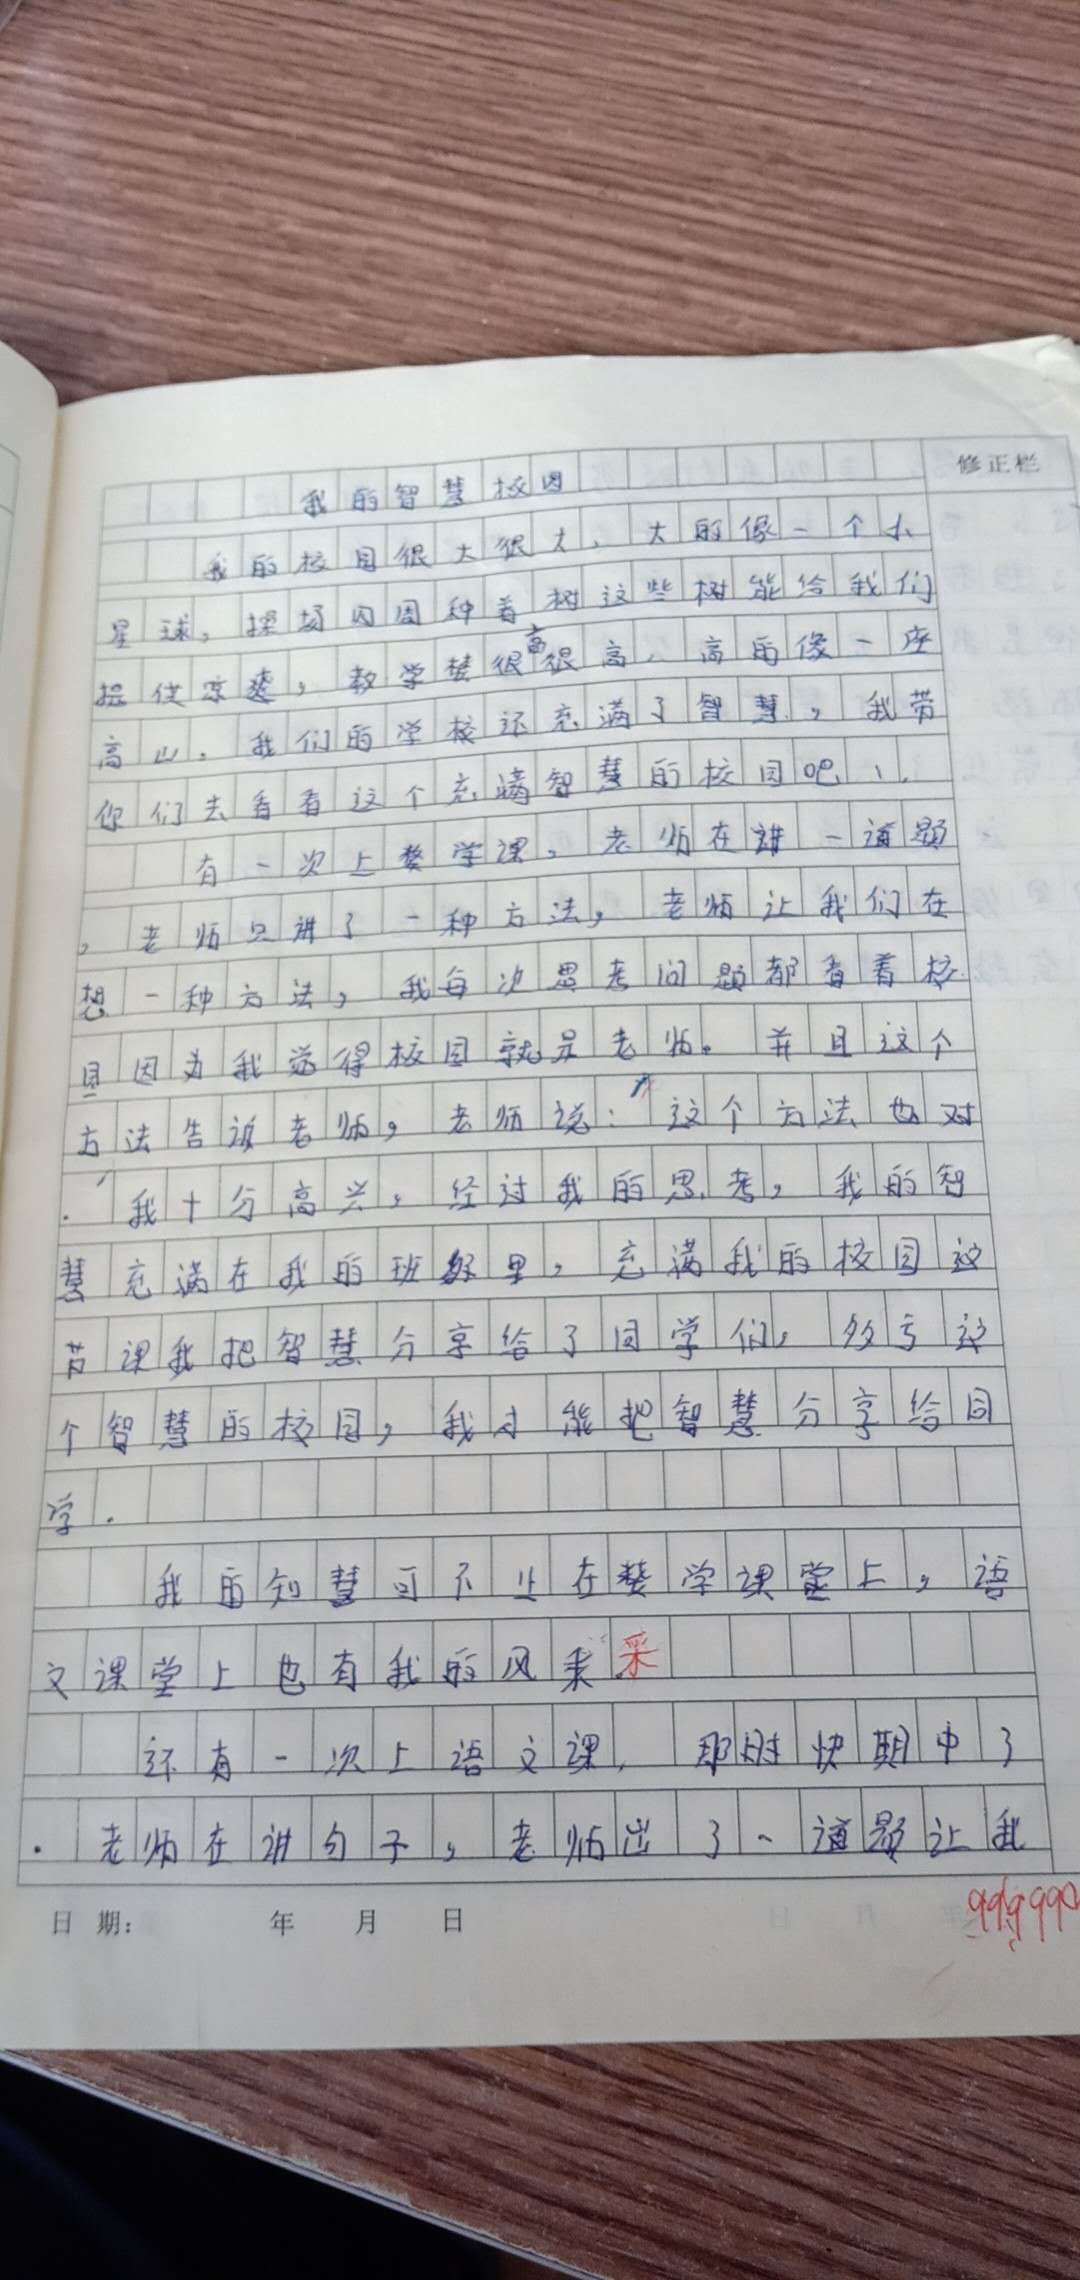 修正栏
我的智慧校园
我的校园很大很大、大的像一个小
星球，操场四周种着树这些树能给我们
提供凉爽，教学楼很高很高、高的像一座
高山。我们的学校还充满了智慧，我带
你们去看看这个充满智慧的校园吧！
有一次上数学课，老师在讲一道题
，老师只讲了一种方法，老师让我们在
想一种方法，我每次思考问题都看着校
园因为我觉得校园就是老师。并且这个
方法告诉老师，老师说：“这个方法也对
。”我十分高兴，经过我的思考，我的智
慧充满在我的班级里，充满我的校园这
节课我把智慧分享给了同学们，多亏这
个智慧的校园，我才能把智慧分享给同
学.
我的知慧可不止在数学课堂上，语
文课堂上也有我的风采
还有一次上语文课，那时快期中了
.老师在讲句子，老师出了一道题让我
日期： 年 月 日